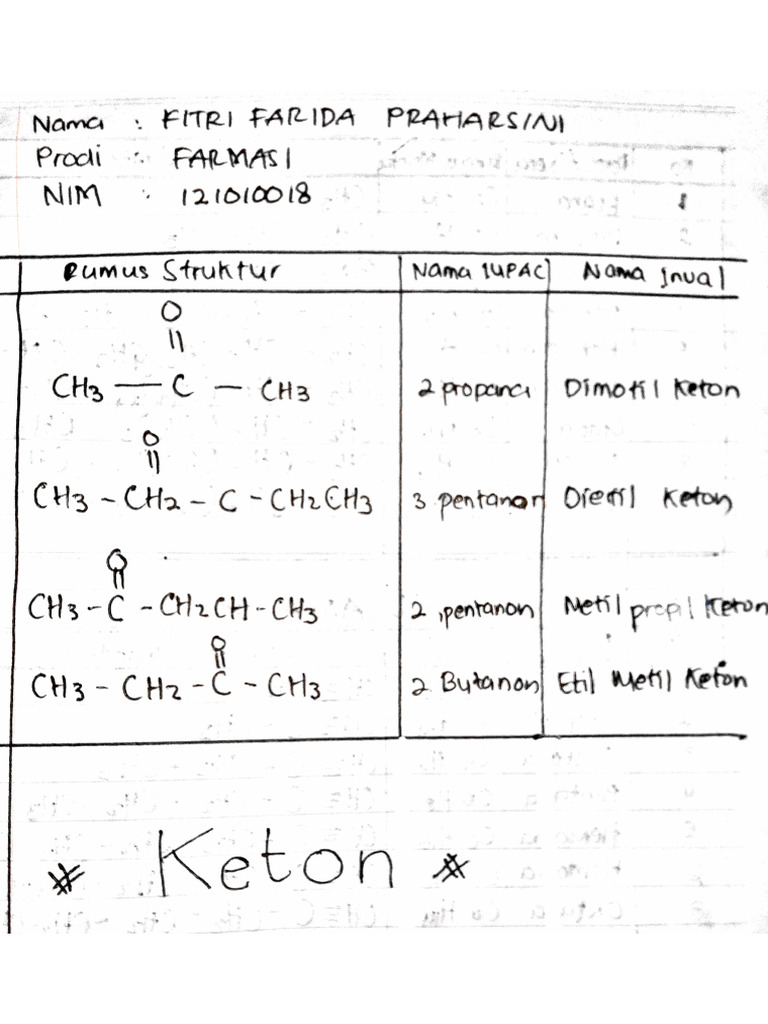 Nama : FITRI FARIDA PRAHARSINI
Prodi : FARMASI
NIM : 121010018
Rumus Struktur Nama IUPAC Nama Trival
O
||
CH3 — C — CH3 2 propanon Dimetil Keton
O
||
CH3 - CH2 - C - CH2 CH3 3 pentanon Dietil Keton
O
||
CH3 - C - CH2 CH - CH3 2, pentanon Metil propil Keton
O
||
CH3 - CH2 - C - CH3 2 Butanon Etil Metil Keton
* Keton *